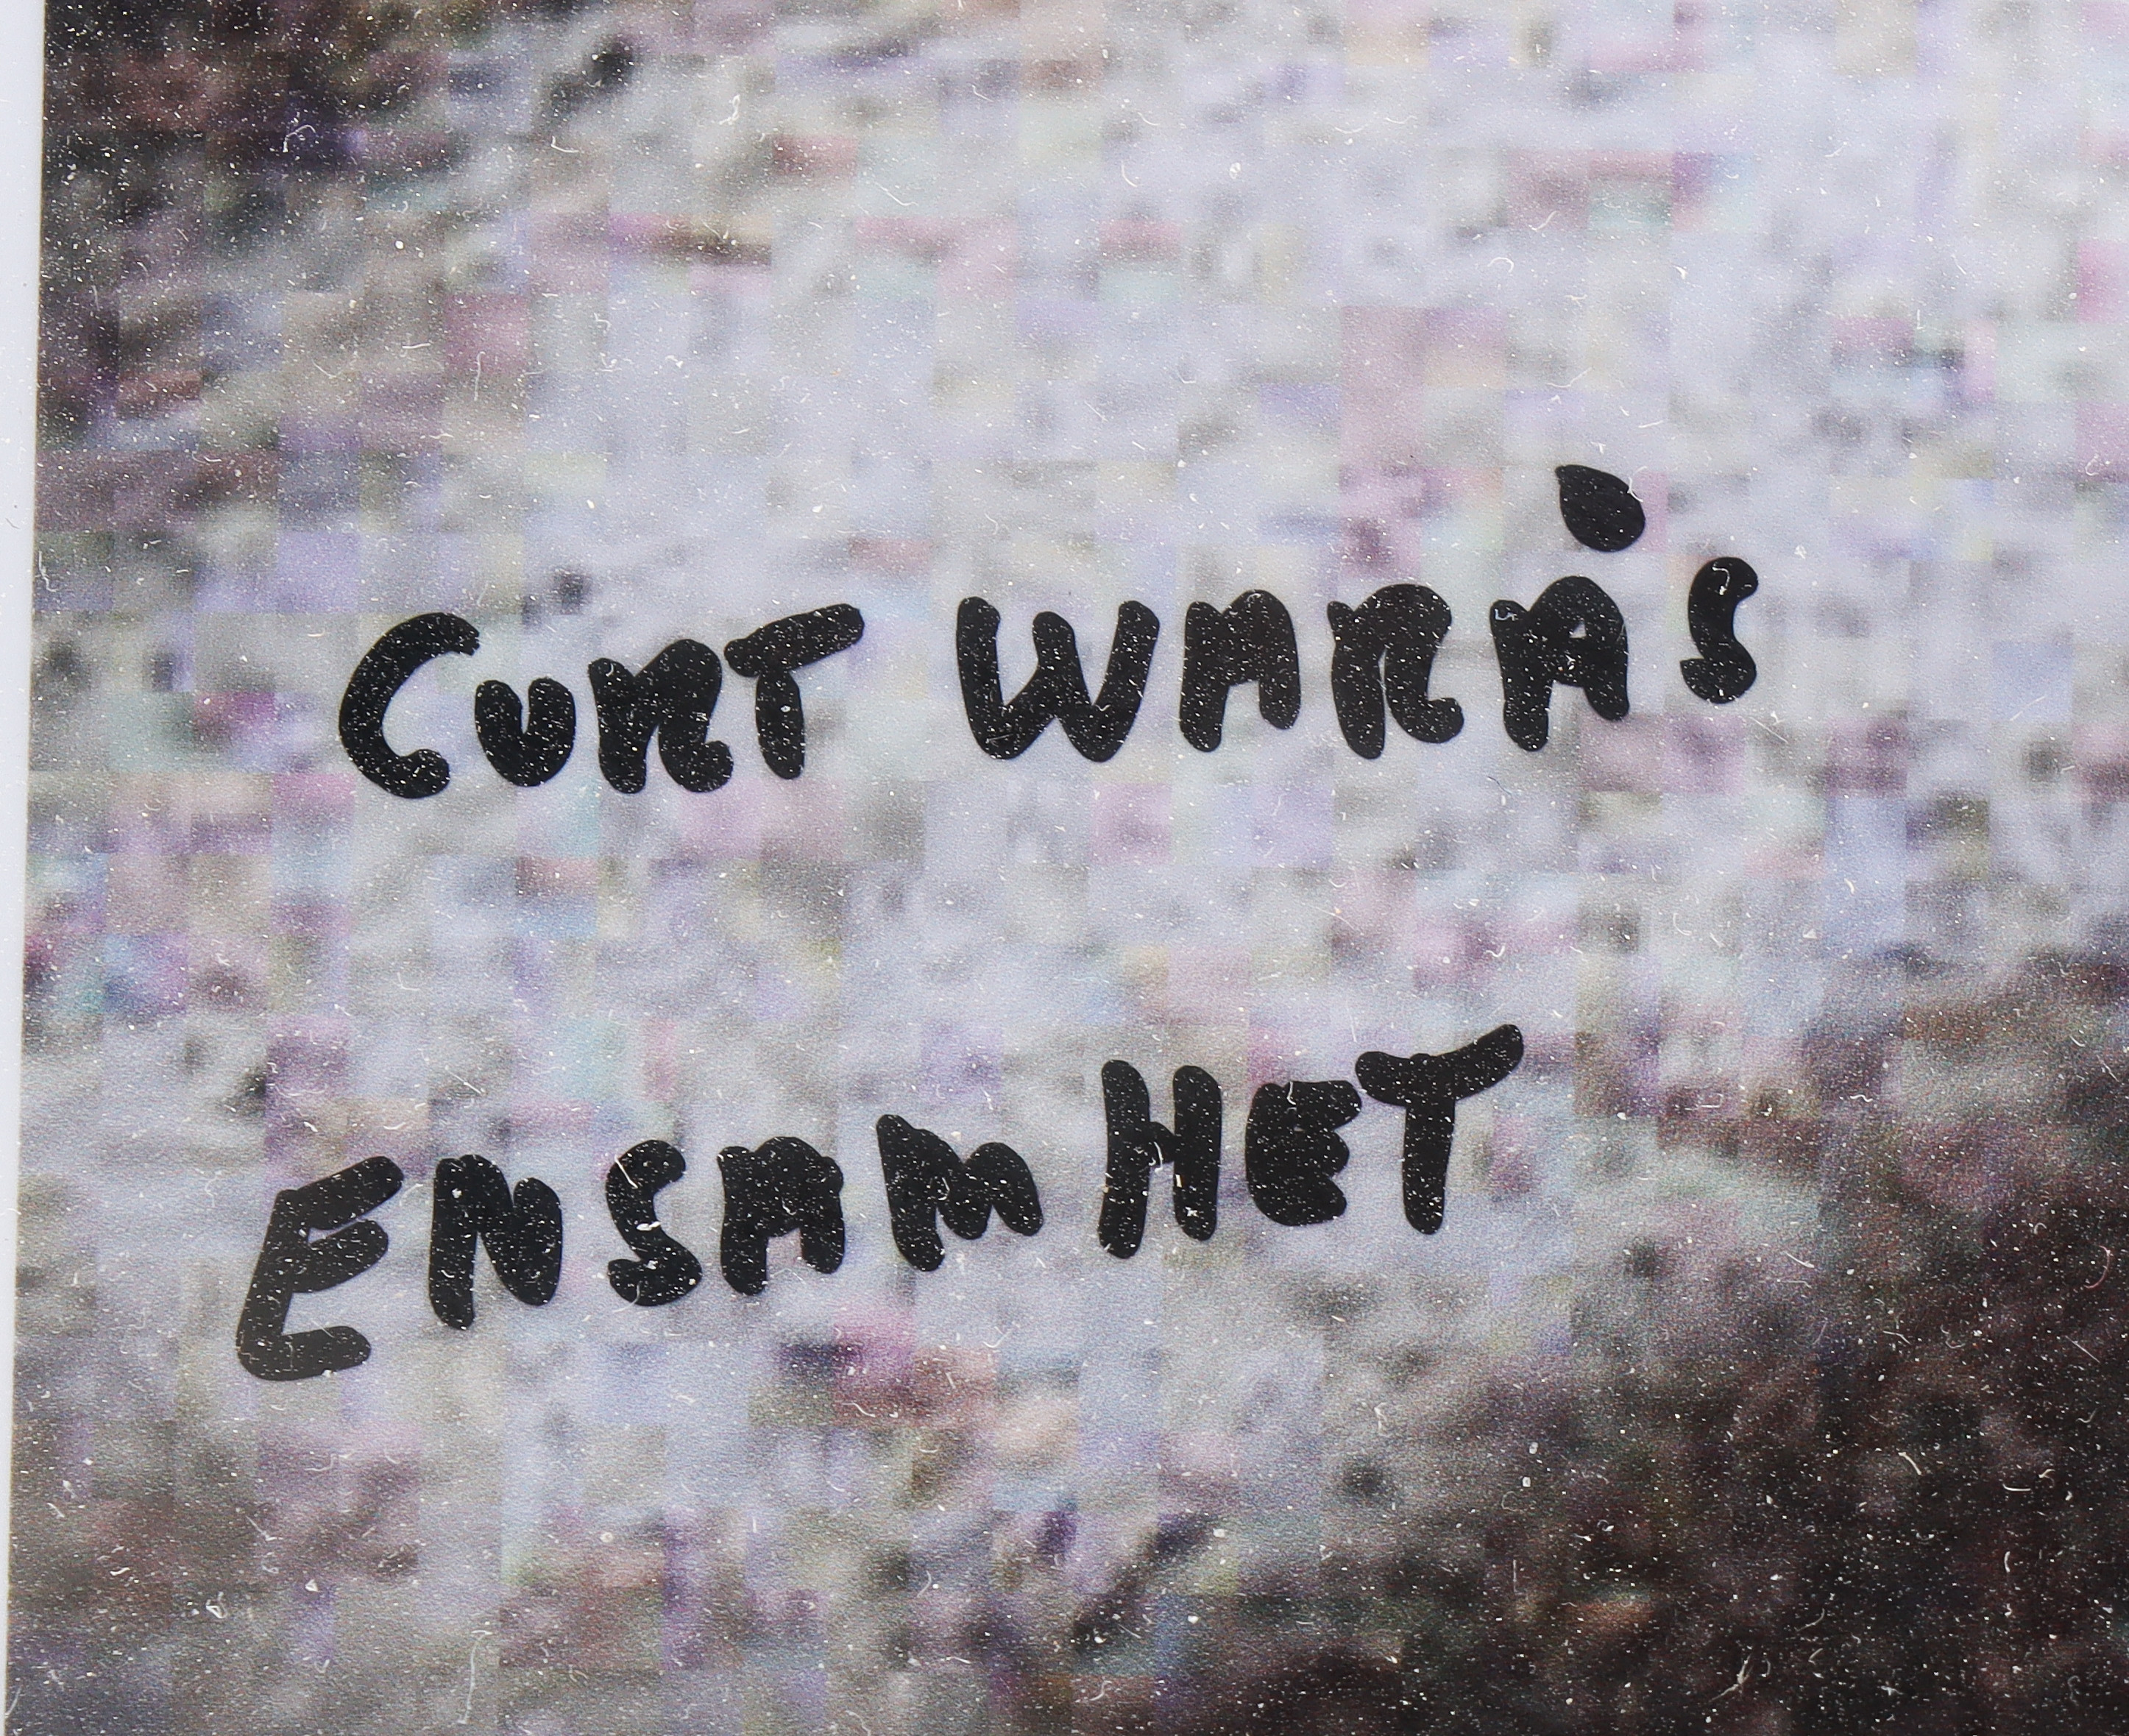 CURT WARÅS
ENSAMHET